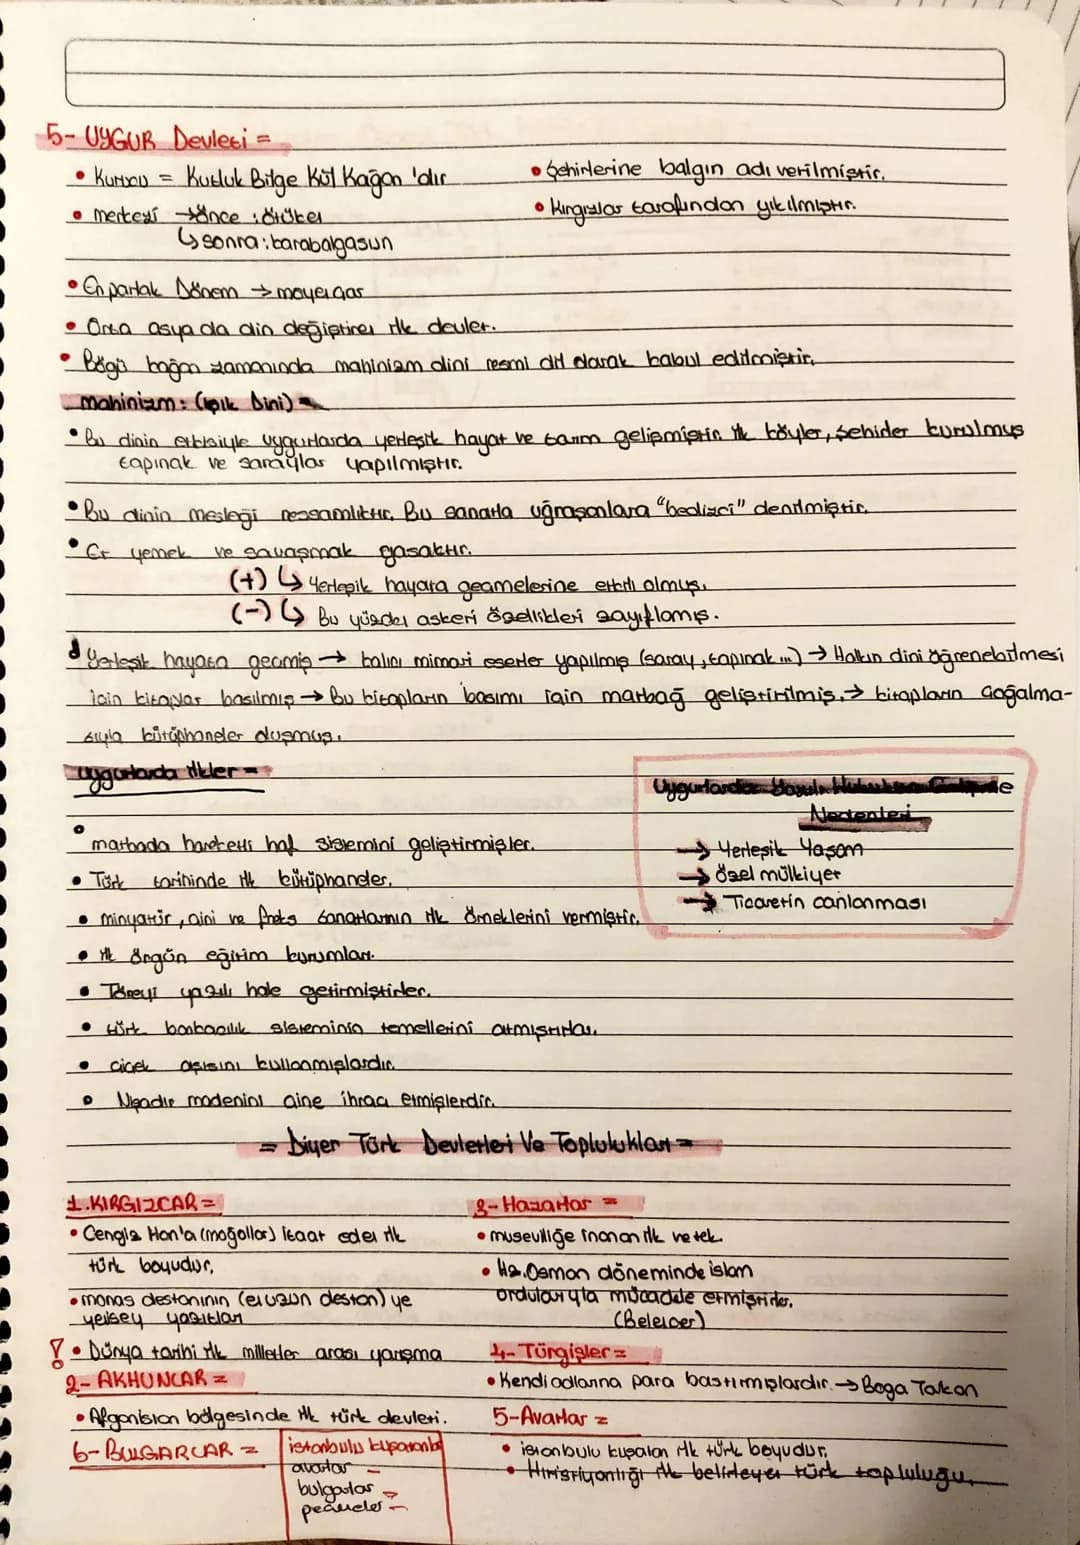 5- UYGUR Devleti =
• Kurucu = Kutluk Bilge Kül Kağan 'dır
• merkezi → önce : ötüken
↳ sonra : karabalgasun
• Şehirlerine balgın adı verilmiştir.
• kırgızlar tarafından yıkılmıştır.
• En parlak Dönem → moyençar
• Orta asya da din değiştiren ilk devlet.
• Bögü kağan zamanında mahinizm dini resmi dil olarak kabul edilmiştir.
mahinizm: (ışık Dini) =
• Bu dinin etkisiyle uygurlarda yerleşik hayat ve tarım gelişmiştir. ilk köyler, şehirler kurulmuş
tapınak ve saraylar yapılmıştır.
• Bu dinin mesleği ressamlıktır. Bu sanatla uğraşanlara "bedizci" denilmiştir.
• Et yemek ve savaşmak yasaktır.
(+) ↳ Yerleşik hayata geçmelerine etkili olmuş.
(-) ↳ Bu yüzden askeri özellikleri zayıflamış.
Yerleşik hayata geçmiş → kalıcı mimari eserler yapılmış (saray, tapınak ...) → Halkın dini öğrenebilmesi
için kitaplar basılmış → Bu kitapların basımı için matbağ geliştirilmiş. → kitapların çoğalma-
sıyla kütüphaneler oluşmuş.
uygurlarda ilkler =
• matbada hareketli harf sistemini geliştirmişler.
• Türk tarihinde ilk kütüphaneler.
• minyatür, çini ve freks sanatlarının ilk örneklerini vermiştir.
• ilk örgün eğitim kurumları.
• Töreyi yazılı hale getirmiştirler.
• türk bankacılık sisteminin temellerini atmıştırlar.
• çiçek aşısını kullanmışlardır.
• Nişadır madenini çine ihraç etmişlerdir.
Uygurlarda Yazılı Hukukun Gelişme
Nedenleri
→ Yerleşik Yaşam
→ özel mülkiyet
→ Ticaretin canlanması
= Diyer Türk Devletleri Ve Toplulukları =
1.KIRGIZLAR =
• Cengiz Han'a (moğollar) itaat eden ilk
türk boyudur.
• manas destanının (en uzun destan) ye
yenisey yazıtları
! • Dünya tarihi ilk milletler arası yarışma
2- AKHUNLAR =
• Afganistan bölgesinde ilk türk devleti.
6- BULGARLAR =
istanbulu kuşatanlar
avarlar -
bulgarlar -
peçenekler -
3- Hazarlar =
• museviliğe inanan ilk ve tek.
• Hz. Osman döneminde islam
ordularıyla mücadele etmiştirler.
(Belencer)
4- Türgişler =
• Kendi adlarına para bastırmışlardır. → Boga Takan
5-Avarlar =
• istanbulu kuşatan ilk türk boyudur.
• Hıristiyanlığı ilk belirleyen türk topluluğu.